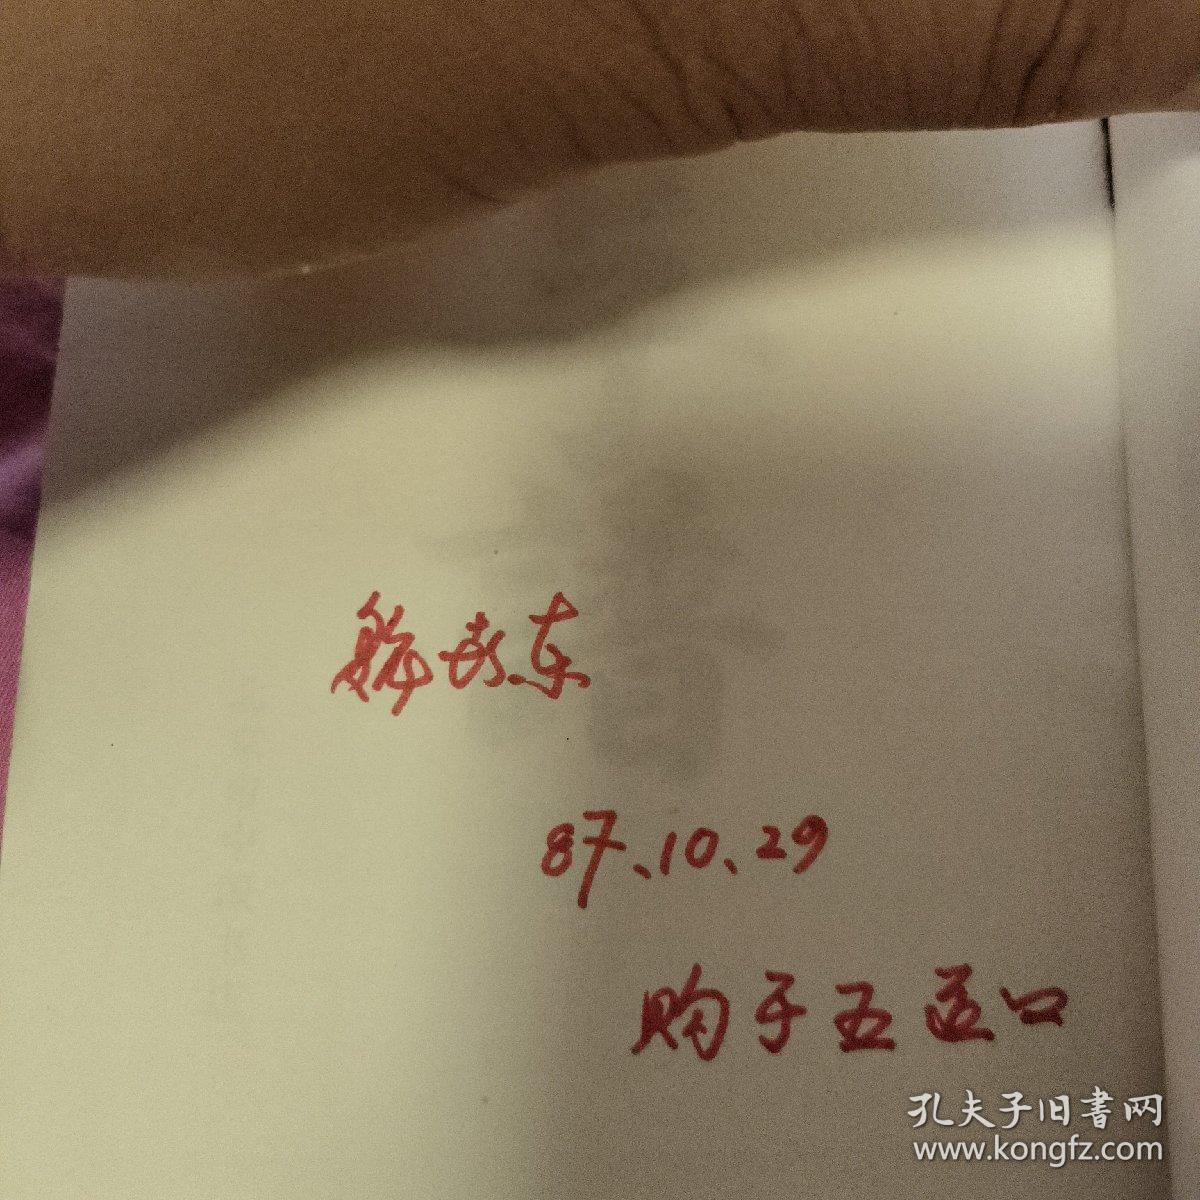 东
87、10、29
购于五道口
孔夫子旧书网
www.kongfz.com